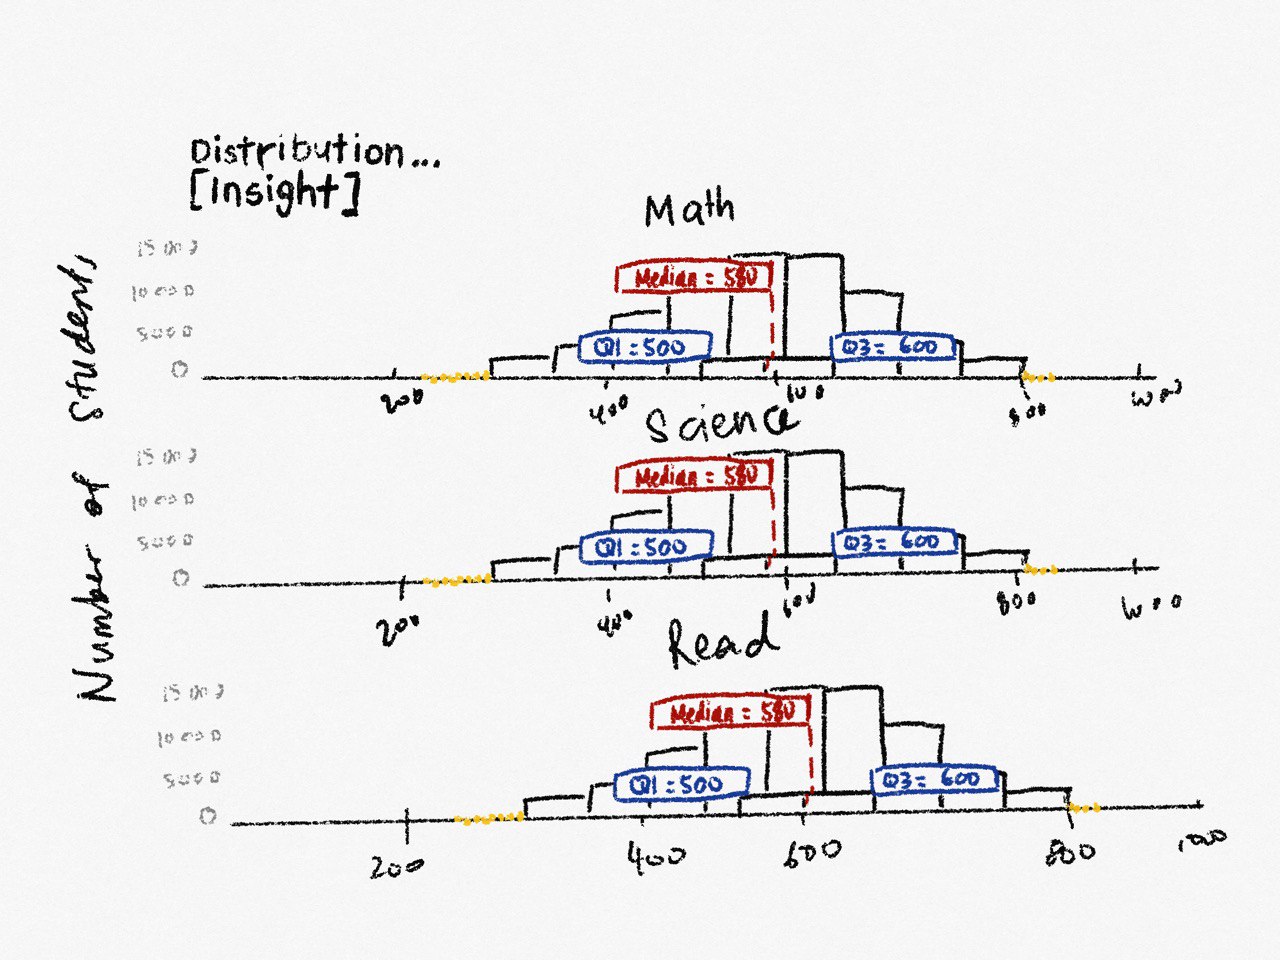 Distribution...
[Insight]
Number of Students
Math
15000
10000
5000
0
Median = 580
Q1 = 500
Q3 = 600
200
400
600
800
1000
Science
15000
10000
5000
0
Median = 580
Q1 = 500
Q3 = 600
200
400
600
800
1000
Read
15000
10000
5000
0
Median = 580
Q1 = 500
Q3 = 600
200
400
600
800
1000